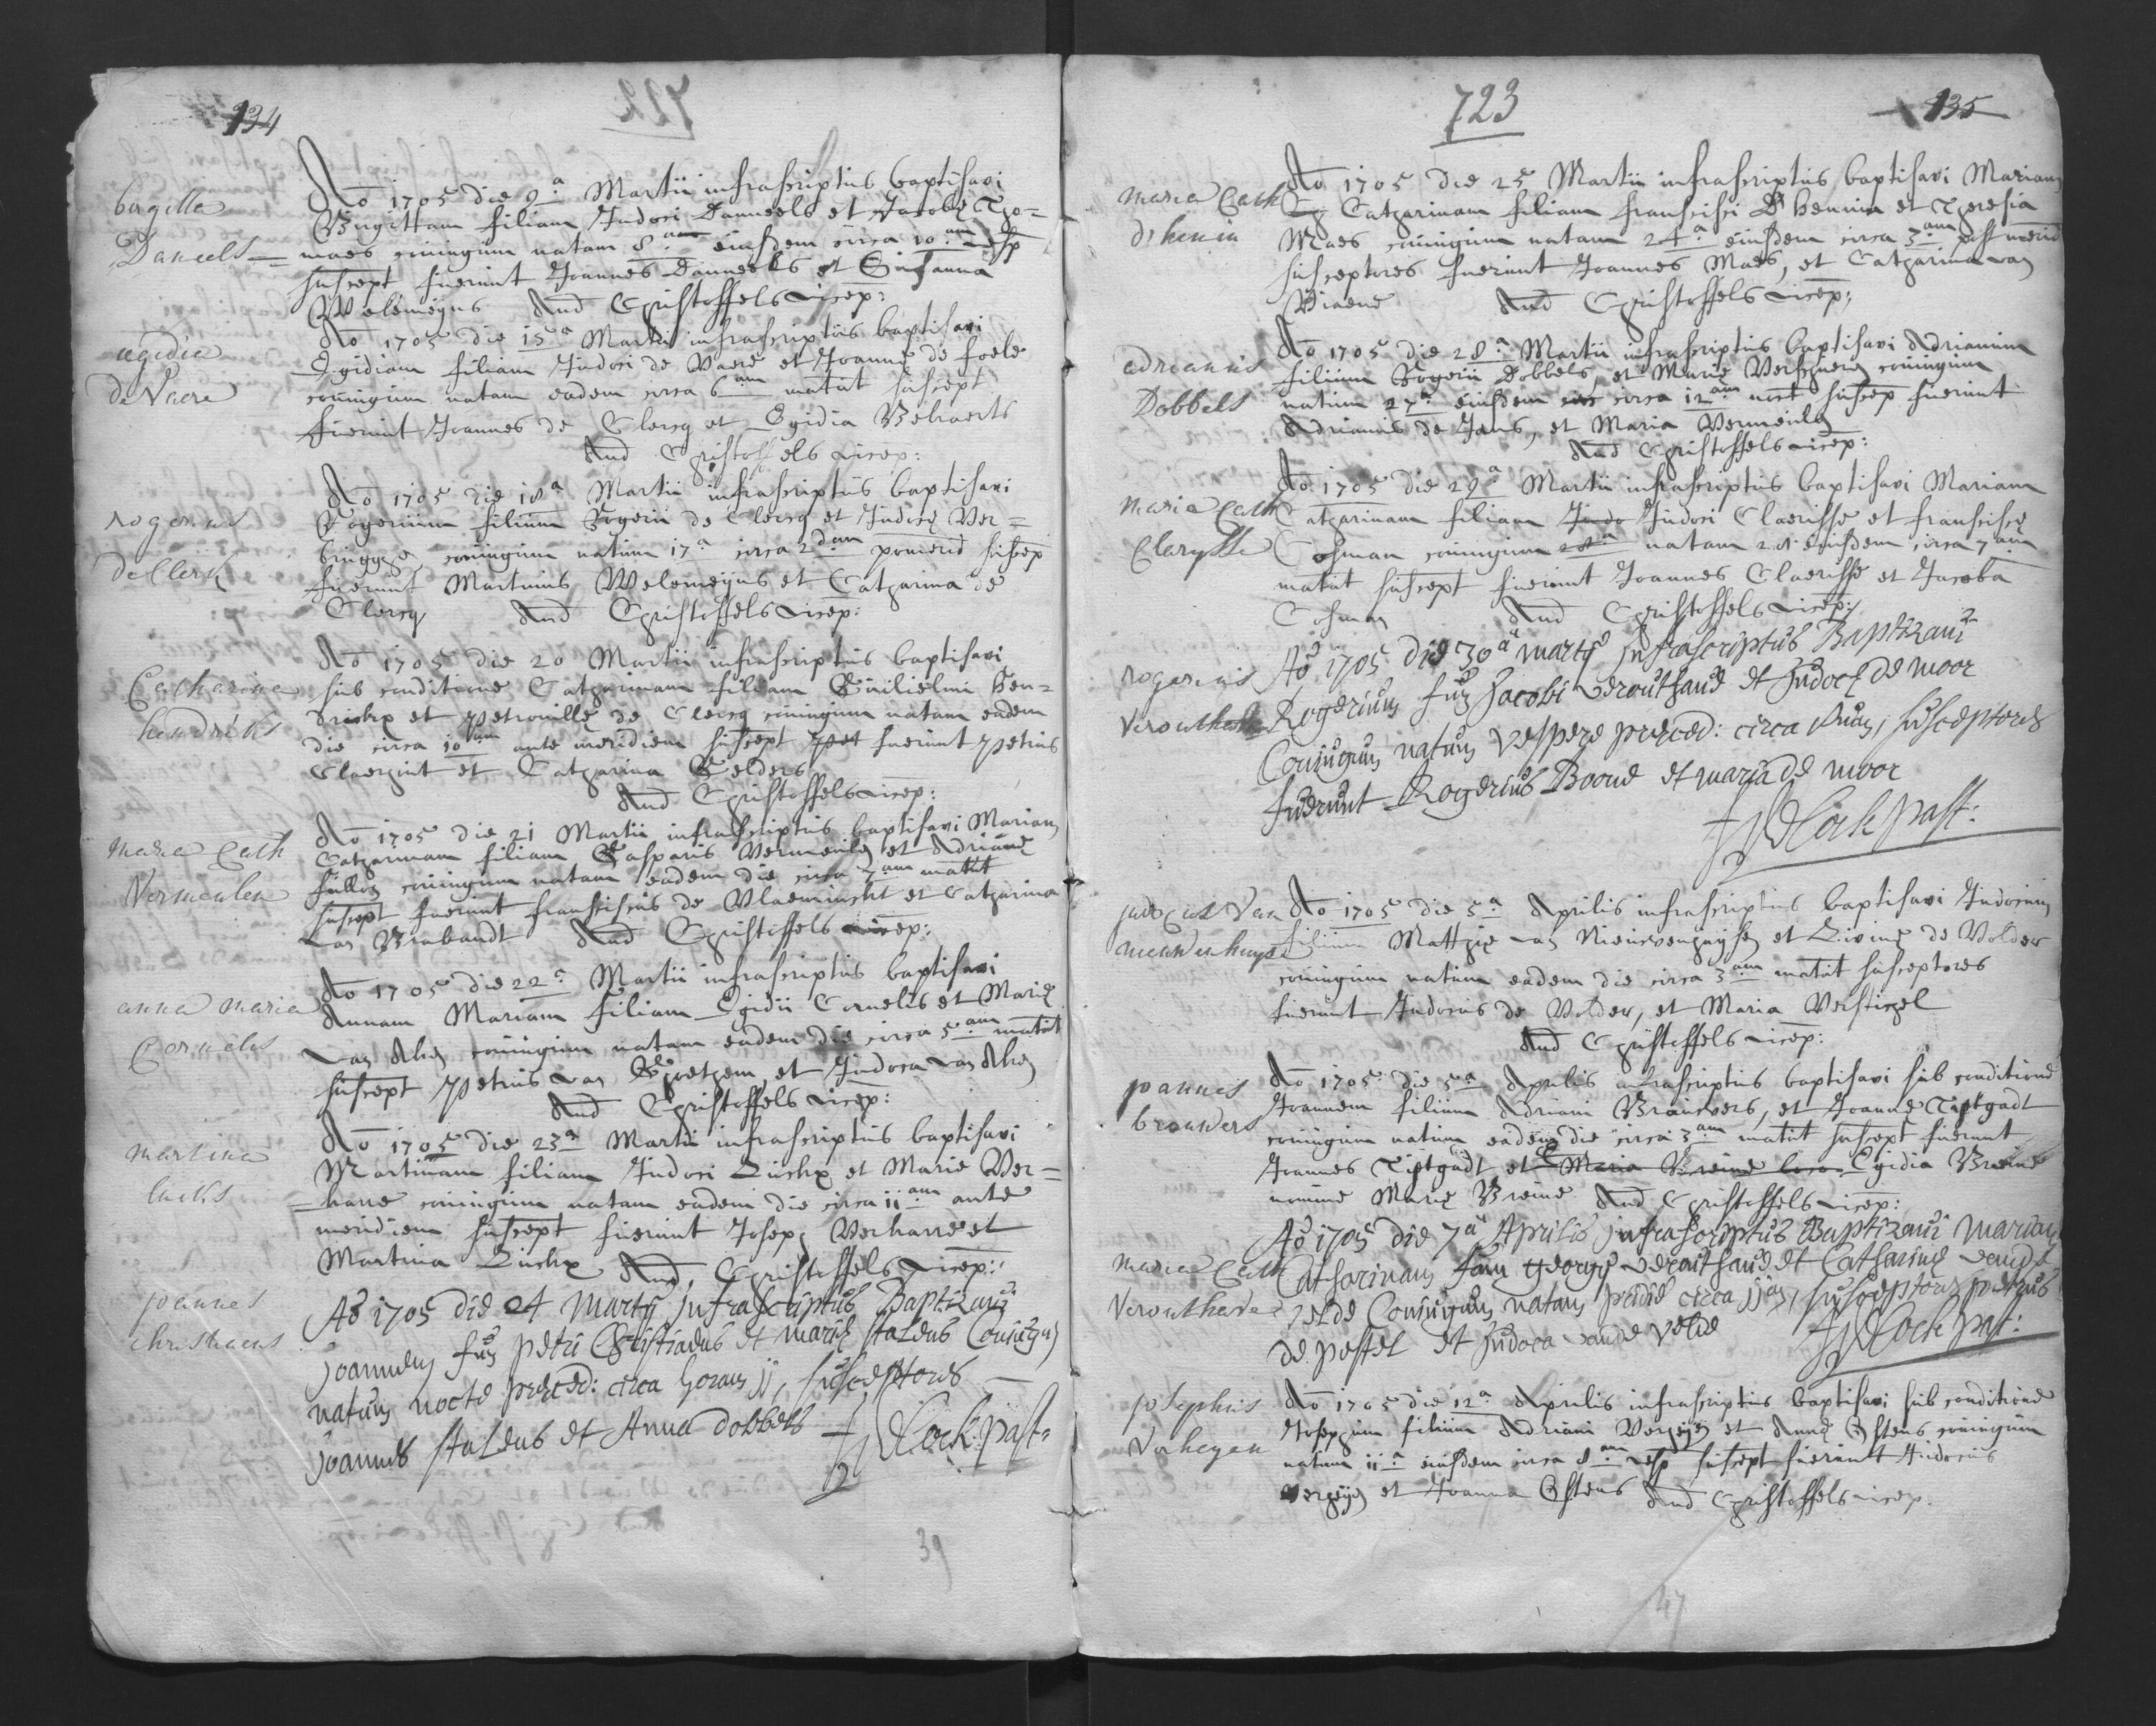 134
722
birgitta
Daneels
Ao 1705 die 9a Martii infrascriptus baptisavi
Birgittam filiam Judoci Danneels et Jacobę Tho=
maes coniugum natam 8am eiusdem circa 10am vesp
suscept fuerunt Joannes Danneels et Susanna
Welemeyns And Christoffels vicep:
egidia
De Vaere
Ao 1705 die 15a Martii infrascriptus baptisavi
Egidiam filiam Judoci de Vaere et Joannę de
coniugum natam eadem circa 6am matut suscept
fuerunt Joannes de Clercq et Egidia Behaerts
And Christoffels vicep:
rogerius
De Clerk
Ao 1705 die 18a Martii infrascriptus baptisavi
Rogerium filium Rogerii de Clercq et Judocę Ver=
brugge, coniugum natum 17a circa 2dam pomerid suscep
fuerunt Martinus Welemeyns et Catharina de
Clercq And Christoffels vicep:
Catharina
hendrickx
Ao 1705 die 20 Martii infrascriptus baptisavi
sub conditione Catharinam filiam Guilielmi Hen=
drickx et Petronillę de Clercq coniugum natam eadem
die circa 10am ante meridiem suscept fuerunt Petrus
Claerhut et Catharina Gelders
And Christoffels vicep:
maria Cath
Vermeulen
Ao 1705 die 21 Martii infrascriptus baptisavi Mariam
Catharinam filiam Gasparis Vermeulen et Adrianę
coniugum natam eadem die circa 7am matut
suscept fuerunt Franciscus de Vlaeminckt et Catharina
van Brabandt And Christoffels vicep:
anna maria
Cornelis
Ao 1705 die 22a Martii infrascriptus baptisavi
Annam Mariam filiam Egidii Cornelis et Marię
van Aken coniugum natam eadem die circa 5am matut
suscept Petrus van Ghoethem et Judoca van Aken
And Christoffels vicep:
martina
luckx
Ao 1705 die 23a Martii infrascriptus baptisavi
Martinam filiam Judoci Luckx et Marie Ver=
=hanne coniugum natam eadem die circa 11am ante
meridiem suscept fuerunt Joseph Verhanne et
Martina Luckx And Christoffels vicep:
joannes
christiaens
Ao 1705 die 24 martij infrascriptus Baptizavi
joannem petri Christiaens et marię stalens Coniugum
natum nocte pręced: circa horam ij, susceptores
joannes stalens et Anna dobbels
De Cock past:
39
723
135
maria Cath
d'hennin
Ao 1705 die 25 Martii infrascriptus baptisavi Mariam
Catharinam filiam Francisci D'hennin et Theresia
Maes coniugum natam 24a eiusdem circa 3am post merid
susceptores fuerunt Joannes Maes, et Catharina van
Vraene And Christoffels vicep:
adrianus
Dobbels
Ao 1705 die 28a Martii infrascriptus baptisavi Adrianum
filium Rogerii Dobbels, et Marię Verschuere coniugum
natum 27a eiusdem circa 12am noct suscep fuerunt
Adrianus de Jans, et Maria Vermeulen
And Christoffels vicep:
maria Cath
Clarysse
Ao 1705 die 29a Martii infrascriptus baptisavi Mariam
Catharinam filiam Judo Judoci Claerisse et Franciscę
Cosman coniugum 28a natam 28 eiusdem circa 7am
matut suscept fuerunt Joannes Claerisse et Jacoba
Cosman And Christoffels vicep:
rogerius
Verouthaeve
Ao 1705 die 30a martij infrascriptus Baptizavi
Rogerium Jacobi verouthaeve et Judocę de moor
Coniugum natum vespere pręced: circa susceptores
fuerunt Rogerius Boone et maria de moor
De Cock past:
judocus Van
nieuwenhuyse
Ao 1705 die 5a Aprilis infrascriptus baptisavi Judocum
filium Matthię van Nieuwenhuyse et Livinę de Volder
coniugum natum eadem die circa 3am matut susceptores
fuerunt Judocus de Volder, et Maria Verstichel
And Christoffels vicep:
joannes
brouwers
Ao 1705 die 5a Aprilis infrascriptus baptisavi sub conditione
Joannem filium Adriani Brauwers, et Joannę Tiptgadt
coniugum natum eadem die circa 3am matut suscept fuerunt
Joannes Tiptgadt et Maria Breine loco Egidia Breine
nomine Marię Breine And Christoffels vicep:
maria Cath
Verouthaeve
Ao 1705 die 7a Aprilis infrascriptus Baptizavi mariam
Catharinam georgij verouthaeve et Catharinę vande
velde Coniugum natam pridie circa ijam, susceptores petrus
de pestel et Judoca vande velde De Cock past:
josephus
Verheyen
Ao 1705 die 12a Aprilis infrascriptus baptisavi sub conditione
Josephum filium Adriani Verheyen et Annę Ostens coniugum
natum 11a eiusdem circa 8am vesp suscept fuerunt Judocus
Verheyen et Joanna Ostens And Christoffels vicep.
47